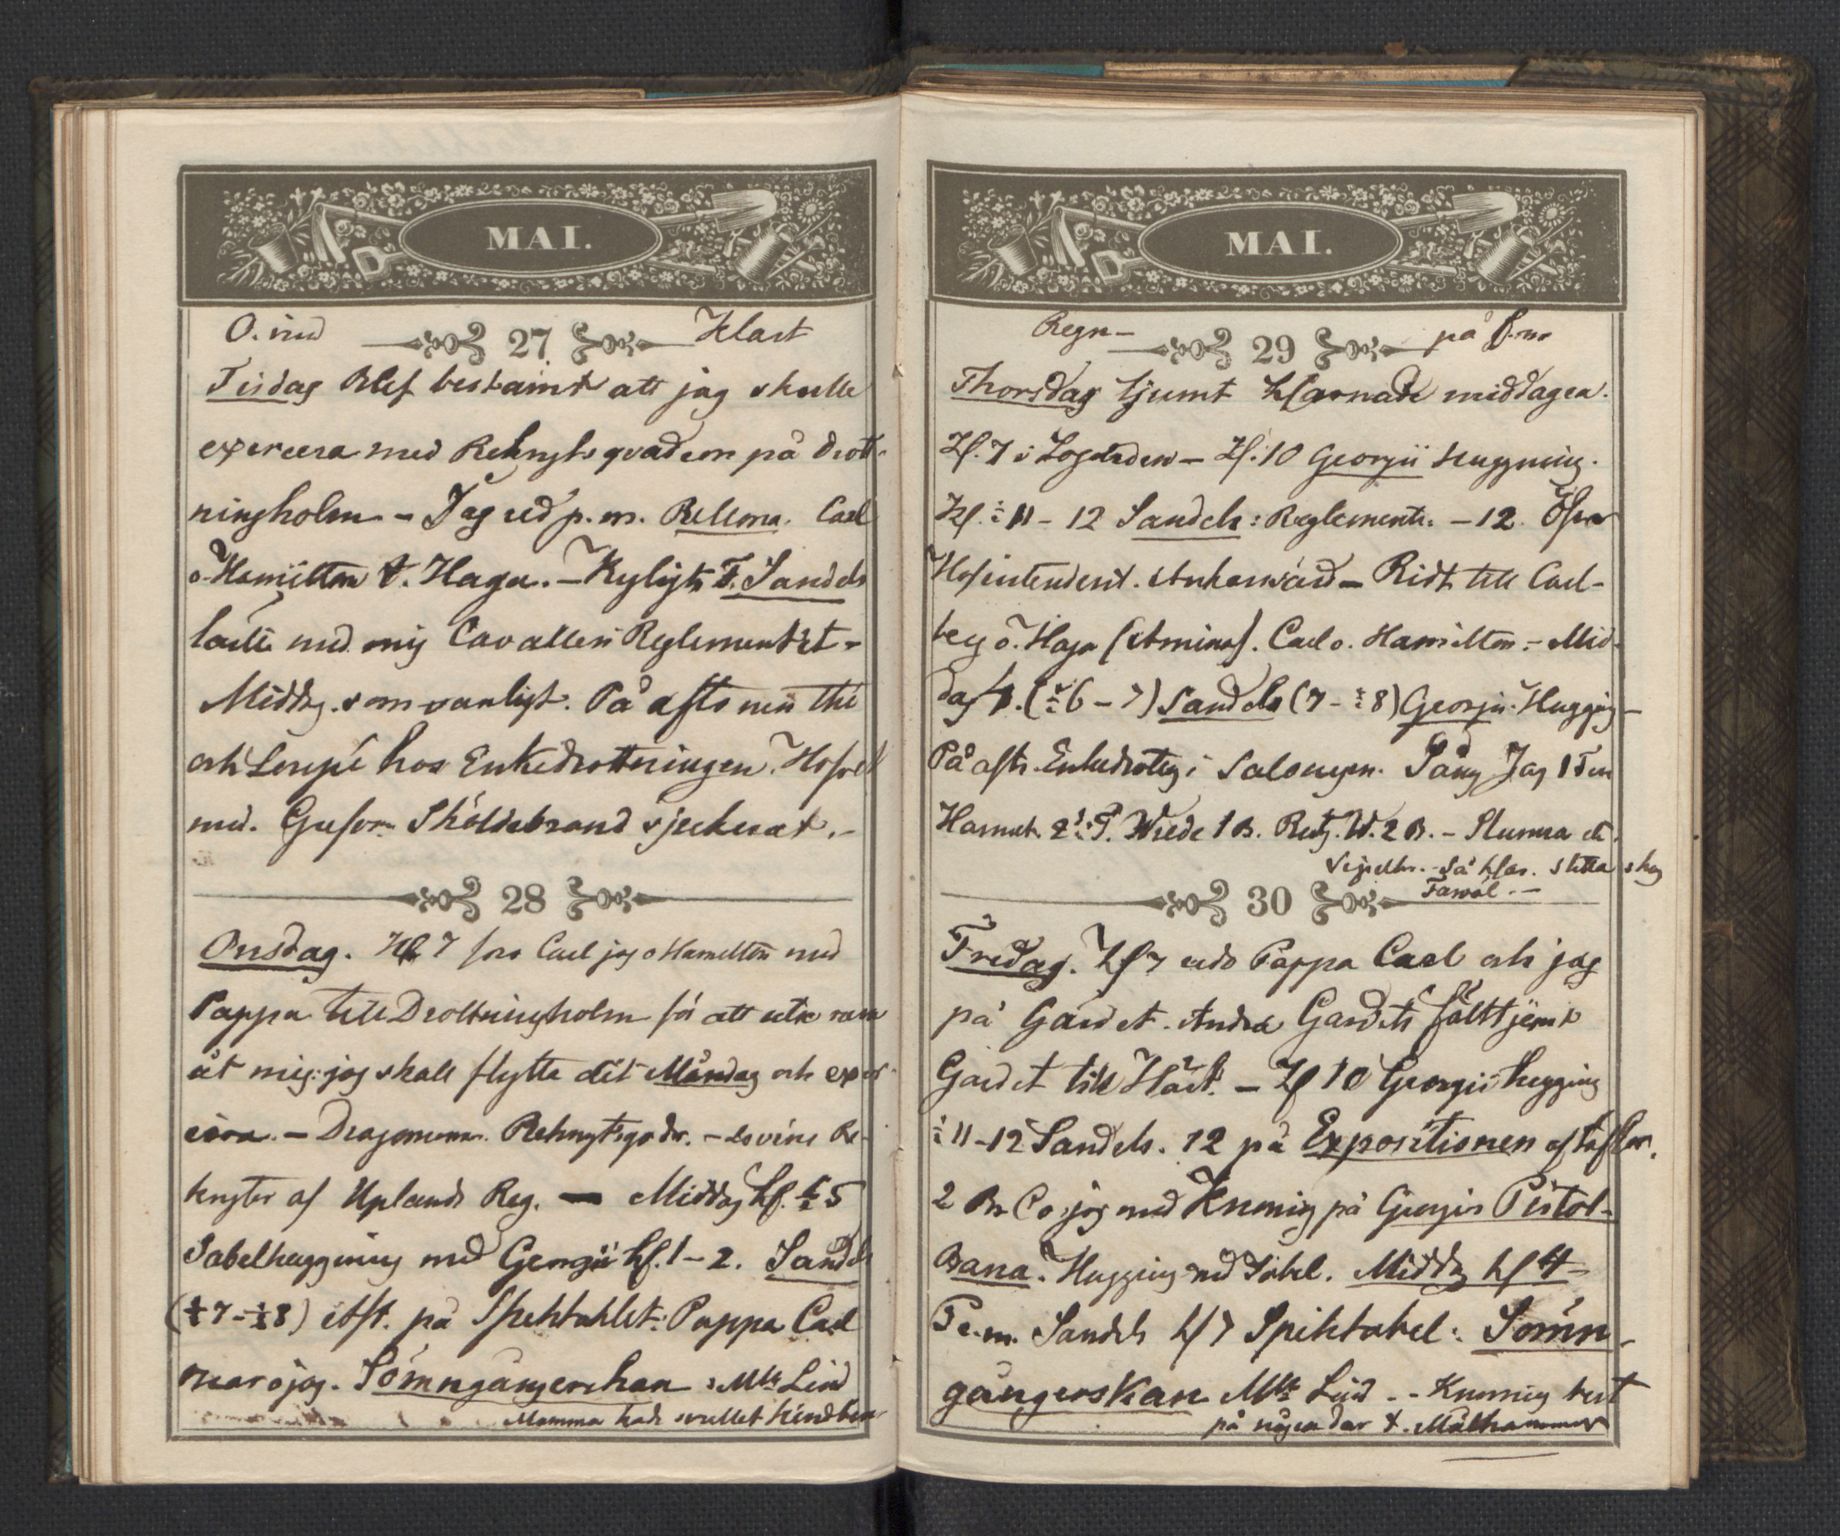 MAI.
O. ind 27 Klart
Tisdag Blef bestämdt att jag skulle
exercera med Rekrytsqvadron på Drott-
ningholm – Jag red p. m. Bellona. Carl
o Hamilton t. Haga. – Kyligt. F. Sandels
läste med mig Cavalleri Reglementet –
Middag. som vanligt. På aftonen thé
och Soupé hos Enkedrottningen. Hofvet
med. Grefvar Sköldebrand sjeckerat. –
28
Onsdag. Kl 7 foro Carl jag o Hamilton med
Pappa till Drottningholm för att utse rum
åt mig: jag skall flytta dit Måndag och exer-
cera. – Dragonerna. Rekrytsqvdr. – Re-
kryter af Uplands Reg. — Middag kl. ½ 5
Sabelhuggning med Georgii kl. 1 – 2. Sandels
(½ 7 – ½ 8) Aft. på Spektaklet: Pappa Carl
Oscar o jag. Sömngångerskan : Mlle Lind
Mamma hade svullet kindben
MAI.
Regn – 29 på f.m.
Thorsdag ljumt klarnade middagen.
Kl. 7 i Logården – Kl. 10 Georgii Huggning.
Kl. ½ 11 – 12 Sandels : Reglemente. – 12.
Hofintendent. Ankarsvärd – Ridt till Carl-
berg o. Haga (Amina). Carl o. Hamilton. – Mid-
dag 4. (½ 6 – 7) Sandels (7 – ½ 8) Georgii. Huggng –
På aft. Enkedrottg i Salongen. Sång Jag 1 Ten
Hamilt. 2 d: T. Wrede 1 B. Reutz. W. 2 B. – Stumma
Så klar. stilla skog
Farväl. –
30
Fredag. Kl 7 redo Pappa Carl och jag
på Gärdet. Andra Gardets fälttjenst
Gardet till Häst. – Kl 10 Georgii huggning
½ 11 – 12 Sandels. 12 på Expositionen af taflor.
2 Br Co. jag med Kronning på Georgiis Pistol-
Bana. Huggning med Sabel. Middag kl 4 –
P e. m. Sandels kl 7 Spektakel : Sömn-
gångerskan Mlle Lind – – Kronning rest
på några dar t. Målhammar